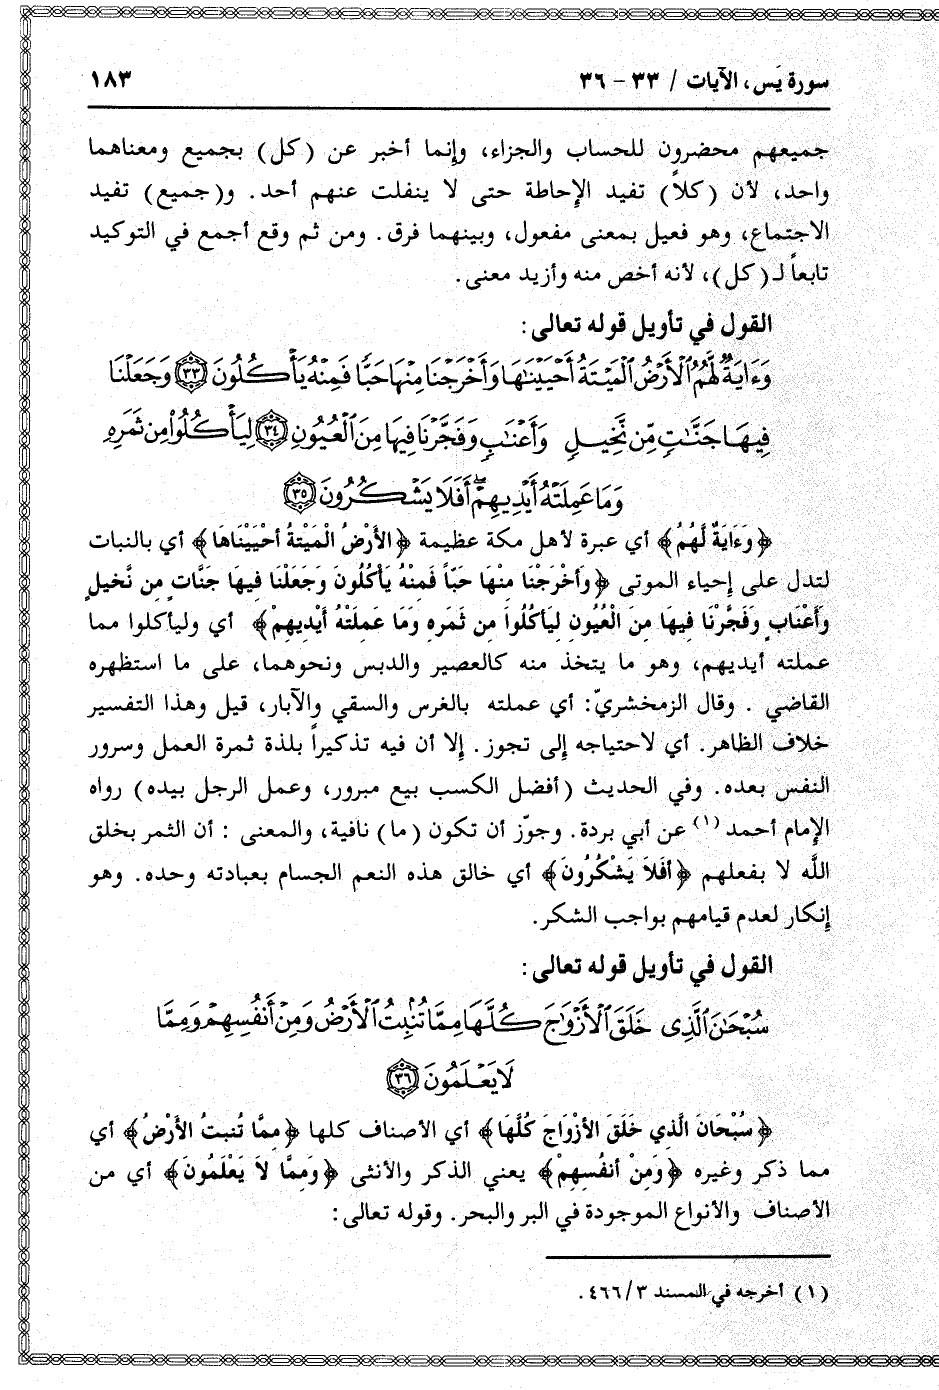 سورة يَس، الآيات / ٣٣ - ٣٦ ١٨٣
جميعهم محضرون للحساب والجزاء، وإنما أخبر عن (كل) بجميع ومعناهما
واحد، لأن (كلاً) تفيد الإحاطة حتى لا ينفلت عنهم أحد. و(جميع) تفيد
الاجتماع، وهو فعيل بمعنى مفعول، وبينهما فرق. ومن ثم وقع أجمع في التوكيد
تابعاً لـ(كل)، لأنه أخص منه وأزيد معنى.
القول في تأويل قوله تعالى:
وَءَايَةٌ لَّهُمُ ٱلْأَرْضُ ٱلْمَيْتَةُ أَحْيَيْنَٰهَا وَأَخْرَجْنَا مِنْهَا حَبًّا فَمِنْهُ يَأْكُلُونَ ٣٣ وَجَعَلْنَا
فِيهَا جَنَّٰتٍ مِّن نَّخِيلٍ وَأَعْنَٰبٍ وَفَجَّرْنَا فِيهَا مِنَ ٱلْعُيُونِ ٣٤ لِيَأْكُلُوا۟ مِن ثَمَرِهِ
وَمَا عَمِلَتْهُ أَيْدِيهِمْ ۖ أَفَلَا يَشْكُرُونَ ٣٥
﴿وَءَايَةٌ لَّهُمُ﴾ أي عبرة لأهل مكة عظيمة ﴿الأَرْضُ الْمَيْتةُ أحْيَيْنَاهَا﴾ أي بالنبات
لتدل على إحياء الموتى ﴿وَأَخْرَجْنَا مِنْهَا حَبّاً فَمِنْهُ يَأْكُلُونَ وَجَعَلْنَا فِيهَا جَنَّاتٍ مِن نَّخيلٍ
وَأعْنَابٍ وَفَجَّرْنَا فِيهَا مِنَ الْعُيُونِ لِيَأكُلُواْ مِن ثَمَرِهِ وَمَا عَمِلَتْهُ أيْدِيهِمْ﴾ أي وليأكلوا مما
عملته أيديهم، وهو ما يتخذ منه كالعصير والدبس ونحوهما، على ما استظهره
القاضي . وقال الزمخشريّ: أي عملته بالغرس والسقي والآبار، قيل وهذا التفسير
خلاف الظاهر. أي لاحتياجه إلى تجوز. إلا أن فيه تذكيراً بلذة ثمرة العمل وسرور
النفس بعده. وفي الحديث (أفضل الكسب بيع مبرور، وعمل الرجل بيده) رواه
الإمام أحمد (١) عن أبي بردة. وجوّز أن تكون (ما) نافية، والمعنى : أن الثمر بخلق
اللَّه لا بفعلهم ﴿أفَلاَ يَشْكُرُونَ﴾ أي خالق هذه النعم الجسام بعبادته وحده. وهو
إنكار لعدم قيامهم بواجب الشكر.
القول في تأويل قوله تعالى:
سُبْحَٰنَ ٱلَّذِى خَلَقَ ٱلْأَزْوَٰجَ كُلَّهَا مِمَّا تُنۢبِتُ ٱلْأَرْضُ وَمِنْ أَنفُسِهِمْ وَمِمَّا
لَا يَعْلَمُونَ ٣٦
﴿سُبْحَانَ الَّذِي خَلَقَ الأزْوَاجَ كُلَّهَا﴾ أي الأصناف كلها ﴿مِمَّا تُنبِتُ الأرْضُ﴾ أي
مما ذكر وغيره ﴿وَمِنْ أنفُسِهِمْ﴾ يعني الذكر والأنثى ﴿وَمِمَّا لاَ يَعْلَمُونَ﴾ أي من
الأصناف والأنواع الموجودة في البر والبحر. وقوله تعالى:
(١) أخرجه في المسند ٤٦٦/٣.